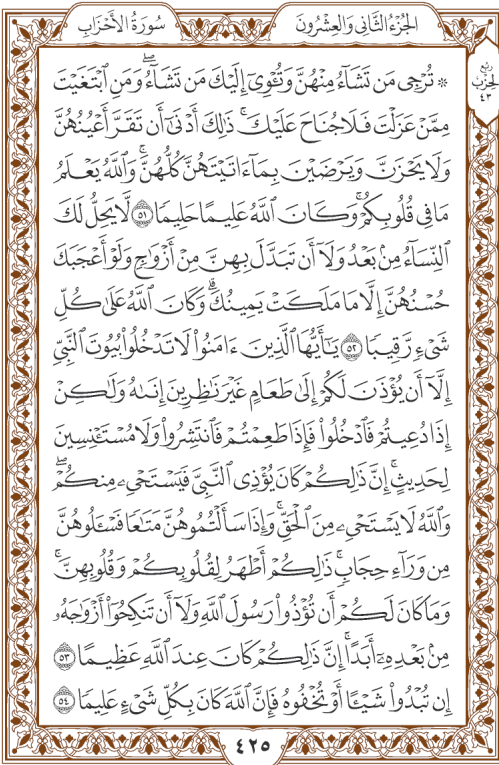 الجُزْءُ الثَّانِي وَالعِشْرُونَ
سُورَةُ الأَحْزَابِ
رُبْع
الحِزْب
٤٣
۞ تُرْجِي مَن تَشَآءُ مِنْهُنَّ وَتُـْٔوِيٓ إِلَيْكَ مَن تَشَآءُۖ وَمَنِ ٱبْتَغَيْتَ
مِمَّنْ عَزَلْتَ فَلَا جُنَاحَ عَلَيْكَۚ ذَٰلِكَ أَدْنَىٰٓ أَن تَقَرَّ أَعْيُنُهُنَّ
وَلَا يَحْزَنَّ وَيَرْضَيْنَ بِمَآ ءَاتَيْتَهُنَّ كُلُّهُنَّۚ وَٱللَّهُ يَعْلَمُ
مَا فِي قُلُوبِكُمْۚ وَكَانَ ٱللَّهُ عَلِيمًا حَلِيمًا ٥١ لَّا يَحِلُّ لَكَ
ٱلنِّسَآءُ مِنۢ بَعْدُ وَلَآ أَن تَبَدَّلَ بِهِنَّ مِنْ أَزْوَٰجٍ وَلَوْ أَعْجَبَكَ
حُسْنُهُنَّ إِلَّا مَا مَلَكَتْ يَمِينُكَۗ وَكَانَ ٱللَّهُ عَلَىٰ كُلِّ
شَيْءٍ رَّقِيبًا ٥٢ يَٰٓأَيُّهَا ٱلَّذِينَ ءَامَنُوا۟ لَا تَدْخُلُوا۟ بُيُوتَ ٱلنَّبِيِّ
إِلَّآ أَن يُؤْذَنَ لَكُمْ إِلَىٰ طَعَامٍ غَيْرَ نَٰظِرِينَ إِنَىٰهُ وَلَٰكِنْ
إِذَا دُعِيتُمْ فَٱدْخُلُوا۟ فَإِذَا طَعِمْتُمْ فَٱنتَشِرُوا۟ وَلَا مُسْتَـْٔنِسِينَ
لِحَدِيثٍۚ إِنَّ ذَٰلِكُمْ كَانَ يُؤْذِي ٱلنَّبِيَّ فَيَسْتَحْيِۦ مِنكُمْۖ
وَٱللَّهُ لَا يَسْتَحْيِۦ مِنَ ٱلْحَقِّۚ وَإِذَا سَأَلْتُمُوهُنَّ مَتَٰعًا فَسْـَٔلُوهُنَّ
مِن وَرَآءِ حِجَابٍۚ ذَٰلِكُمْ أَطْهَرُ لِقُلُوبِكُمْ وَقُلُوبِهِنَّۚ
وَمَا كَانَ لَكُمْ أَن تُؤْذُوا۟ رَسُولَ ٱللَّهِ وَلَآ أَن تَنكِحُوٓا۟ أَزْوَٰجَهُۥ
مِنۢ بَعْدِهِۦٓ أَبَدًاۚ إِنَّ ذَٰلِكُمْ كَانَ عِندَ ٱللَّهِ عَظِيمًا ٥٣
إِن تُبْدُوا۟ شَيْـًٔا أَوْ تُخْفُوهُ فَإِنَّ ٱللَّهَ كَانَ بِكُلِّ شَيْءٍ عَلِيمًا ٥٤
٤٢٥